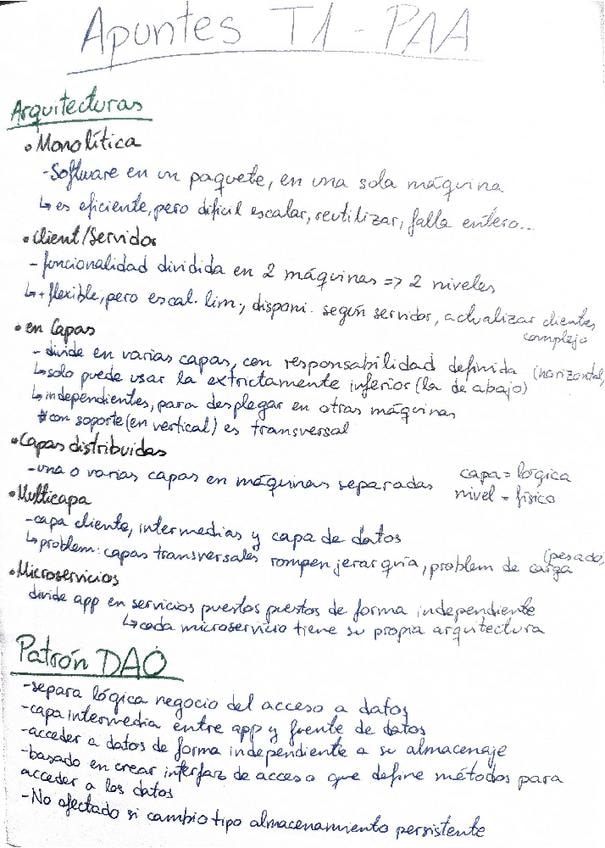 Apuntes T1 - PAA
Arquitecturas
• Monolítica
- Software en un paquete, en una sola máquina
↳ es eficiente, pero dificil escalar, reutilizar, falla entero...
• Client/Servidor
- funcionalidad dividida en 2 máquinas => 2 niveles
↳ + flexible, pero escal. lim., disponi. según servidor, actualizar clientes
complejo
• en Capas
- divide en varias capas, con responsabilidad definida (horizontal)
↳ solo puede usar la extrictamente inferior (la de abajo)
↳ independientes, para desplegar en otras máquinas
* con soporte (en vertical) es transversal
• Capas distribuidas
- una o varias capas en máquinas separadas
capa = lógica
nivel = físico
• Multicapa
- capa cliente, intermedias y capa de datos
↳ problem: capas transversales rompen jerarquía, problem de carga
(pesado)
• Microservicios
divide app en servicios puestos puestos de forma independiente
↳ cada microservicio tiene su propia arquitectura
Patrón DAO
- separa lógica negocio del acceso a datos
- capa intermedia entre app y fuente de datos
- acceder a datos de forma independiente a su almacenaje
- basado en crear interfaz de acceso que define métodos para
acceder a los datos
- No afectado si cambio tipo almacenamiento persistente